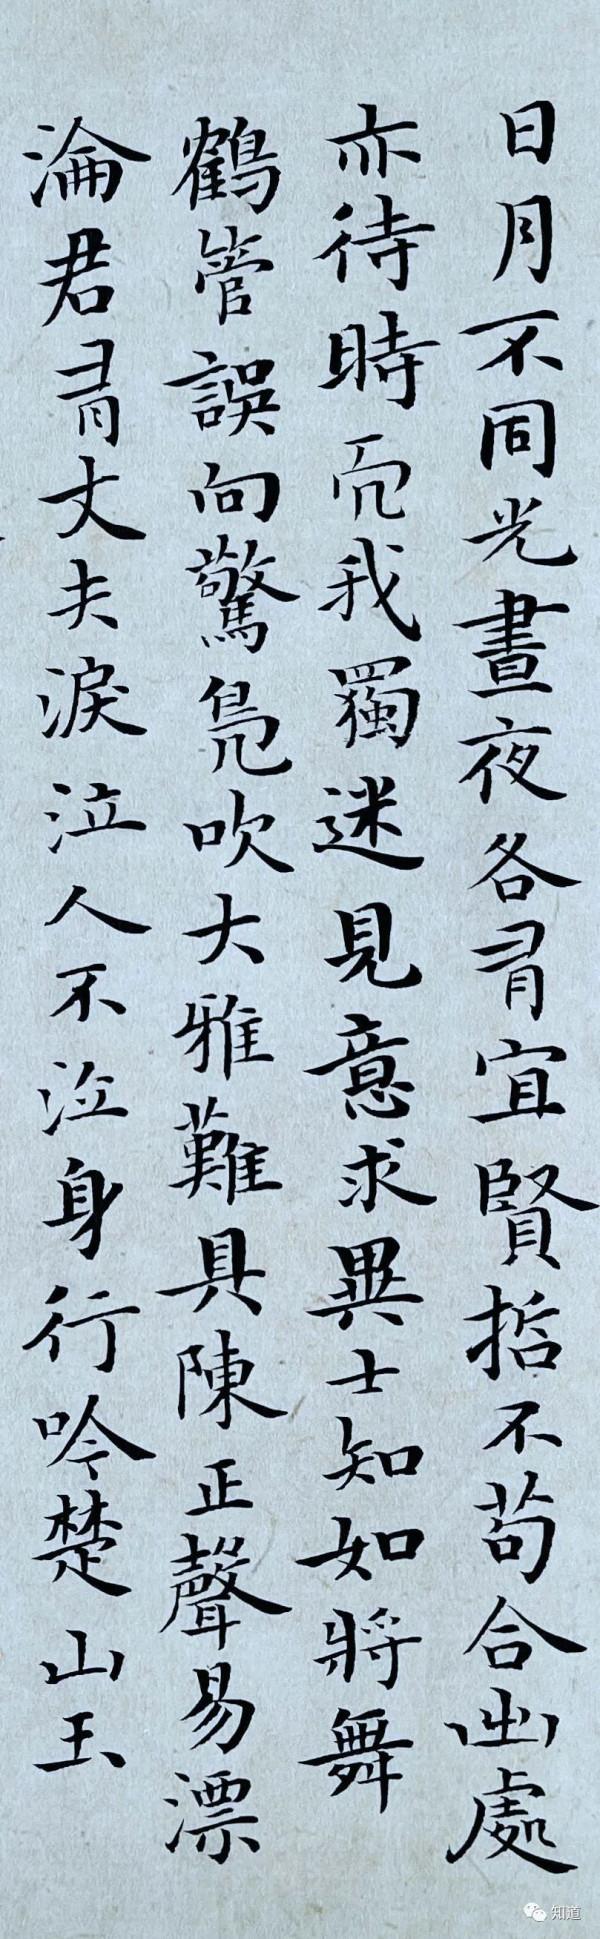 日月不同光晝夜各有宜賢哲不苟合出處
亦待時而我獨迷見意求異士知如將舞
鶴管誤向驚鳧吹大雅難具陳正聲易漂
淪君有丈夫淚泣人不泣身行吟楚山玉
知道